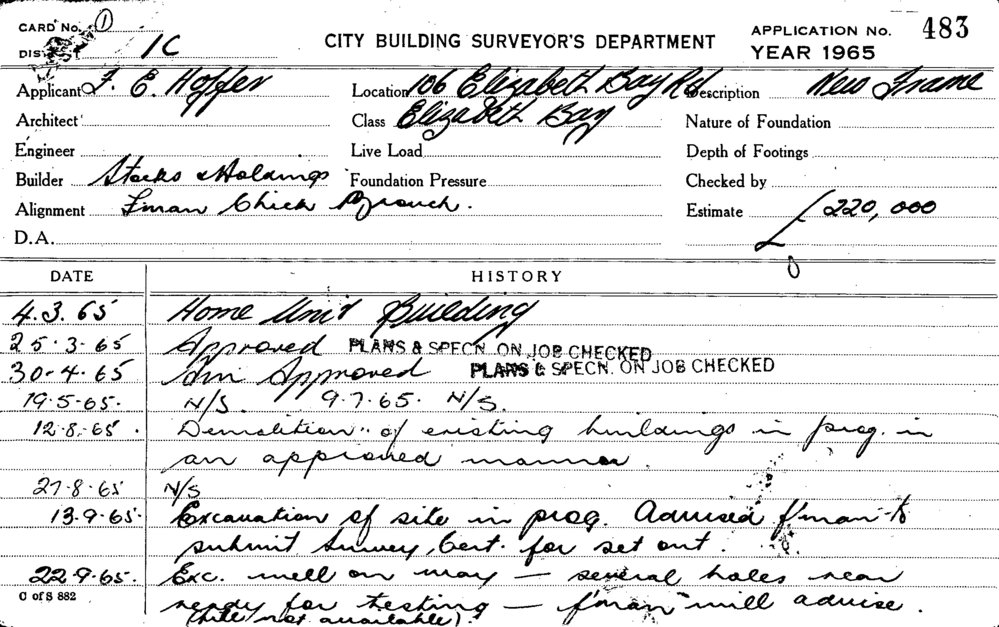 CARD No. 1
DIS 1C
CITY BUILDING SURVEYOR'S DEPARTMENT
APPLICATION No. 483
YEAR 1965
Applicant F. E. Hoffer
Location 106 Elizabeth Bay Rd
Description New Frame
Architect
Class Elizabeth Bay
Nature of Foundation
Engineer
Live Load
Depth of Footings
Builder Stocks & Holdings
Foundation Pressure
Checked by
Alignment F'man Chick
Estimate £220,000
D.A.
DATE HISTORY
4.3.65 Home Unit Building
25.3.65 Approved PLANS & SPECN. ON JOB CHECKED
30.4.65 Am Approved PLANS & SPECN. ON JOB CHECKED
19.5.65. N/S. 9.7.65. N/S.
12.8.65. Demolition of existing buildings in prog. in
an approved manner.
27.8.65 N/S
13.9.65. Excavation of site in prog. Advised f'man to
submit Survey Cert. for set out.
22.9.65. Exc. well on way – several holes near
ready for testing – f'man will advise.
C of S 882
(hile not available).